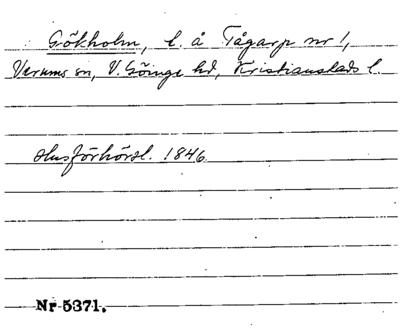 Gökholm, l. å Tågarp nr 1,
Verums sn, V. Göinge hd, Kristianstads l.
Husförhörsl. 1846.
Nr 5371.